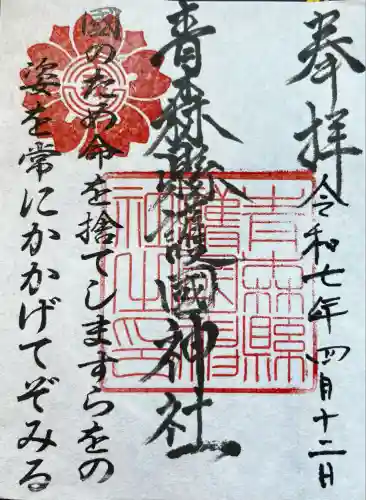 奉拝
令和七年四月十二日
青森縣護國神社
青森縣護國神社之印
國のため命を捨てしますらをの
姿を常にかかげてぞみる